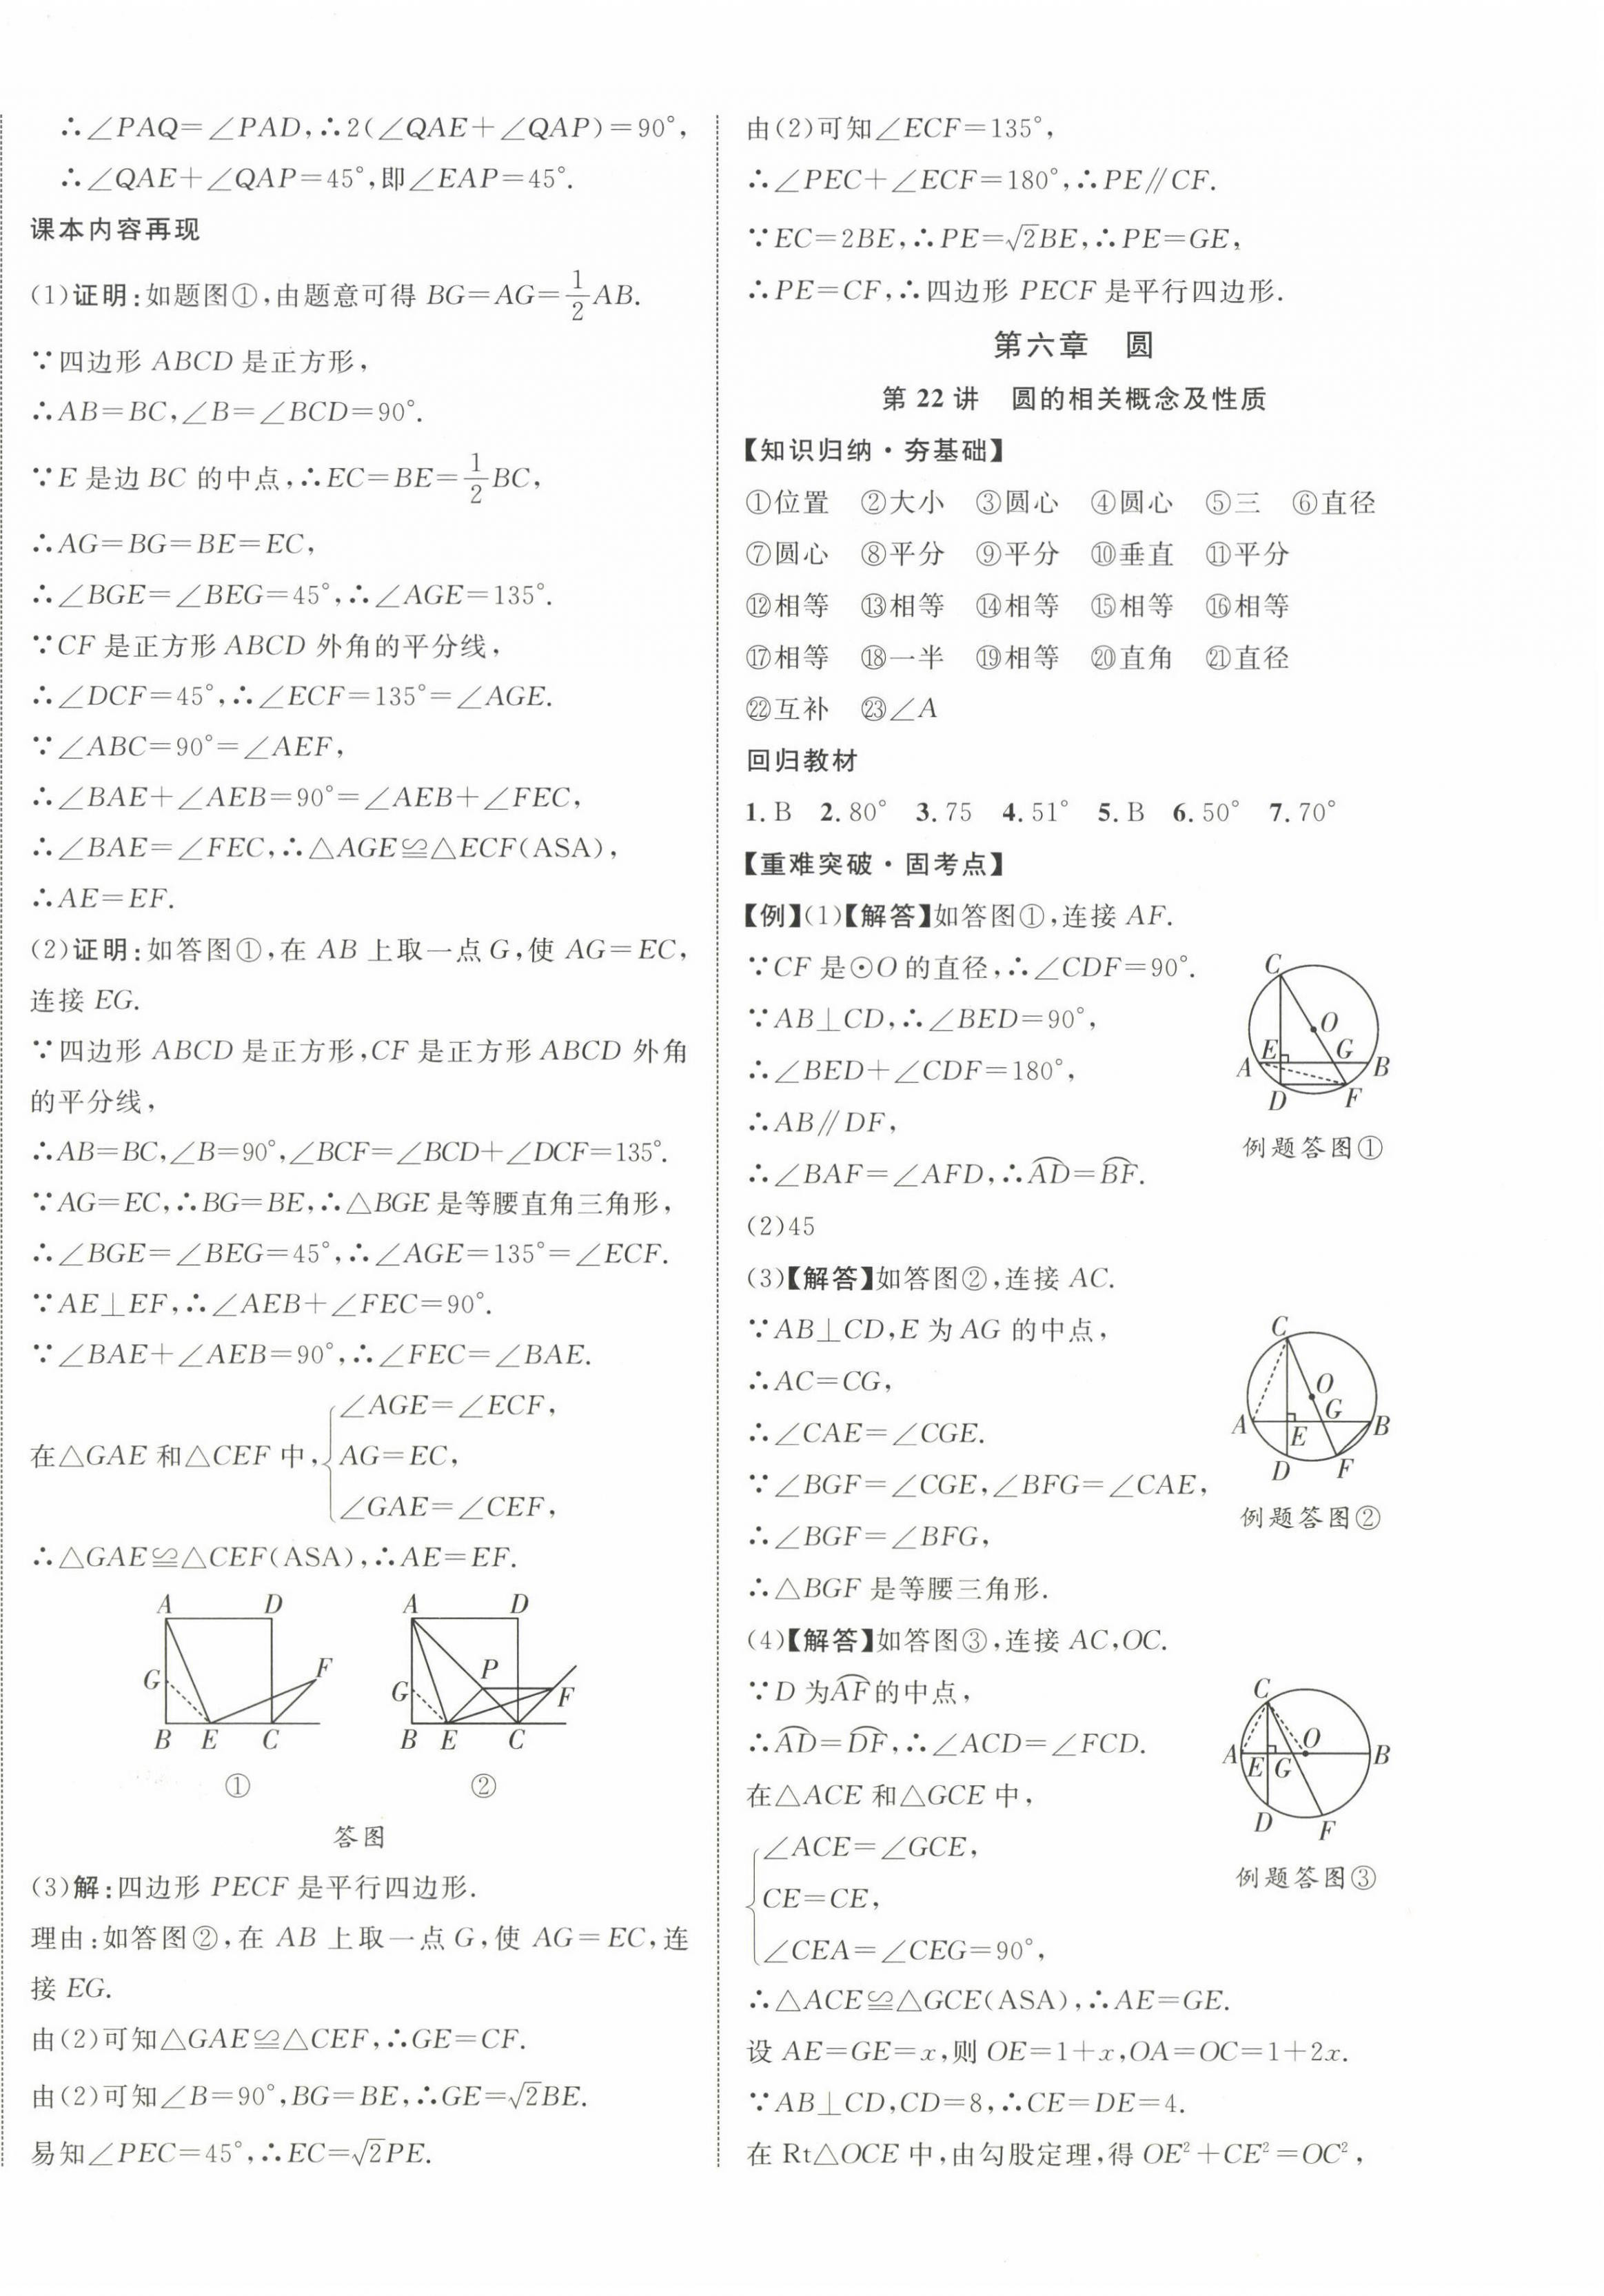 ∴∠PAQ=∠PAD,∴2(∠QAE+∠QAP)=90°,
∴∠QAE+∠QAP=45°,即∠EAP=45°.
课本内容再现
(1)证明:如题图①,由题意可得 BG=AG=1/2AB.
∵四边形 ABCD 是正方形,
∴AB=BC,∠B=∠BCD=90°.
∵E 是边 BC 的中点,∴EC=BE=1/2BC,
∴AG=BG=BE=EC,
∴∠BGE=∠BEG=45°,∴∠AGE=135°.
∵CF 是正方形 ABCD 外角的平分线,
∴∠DCF=45°,∴∠ECF=135°=∠AGE.
∵∠ABC=90°=∠AEF,
∴∠BAE+∠AEB=90°=∠AEB+∠FEC,
∴∠BAE=∠FEC,∴△AGE≌△ECF(ASA),
∴AE=EF.
(2)证明:如答图①,在 AB 上取一点 G,使 AG=EC,
连接 EG.
∵四边形 ABCD 是正方形,CF 是正方形 ABCD 外角
的平分线,
∴AB=BC,∠B=90°,∠BCF=∠BCD+∠DCF=135°.
∵AG=EC,∴BG=BE,∴△BGE 是等腰直角三角形,
∴∠BGE=∠BEG=45°,∴∠AGE=135°=∠ECF.
∵AE⊥EF,∴∠AEB+∠FEC=90°.
∵∠BAE+∠AEB=90°,∴∠FEC=∠BAE.
∠AGE=∠ECF,
在△GAE 和△CEF 中,{AG=EC,
∠GAE=∠CEF,
∴△GAE≌△CEF(ASA),∴AE=EF.
A D A D
F P
G G F
B E C B E C
① ②
答图
(3)解:四边形 PECF 是平行四边形.
理由:如答图②,在 AB 上取一点 G,使 AG=EC,连
接 EG.
由(2)可知△GAE≌△CEF,∴GE=CF.
由(2)可知∠B=90°,BG=BE,∴GE=√2BE.
易知∠PEC=45°,∴EC=√2PE.
由(2)可知∠ECF=135°,
∴∠PEC+∠ECF=180°,∴PE∥CF.
∵EC=2BE,∴PE=√2BE,∴PE=GE,
∴PE=CF,∴四边形 PECF 是平行四边形.
第六章 圆
第 22 讲 圆的相关概念及性质
【知识归纳·夯基础】
①位置 ②大小 ③圆心 ④圆心 ⑤三 ⑥直径
⑦圆心 ⑧平分 ⑨平分 ⑩垂直 ⑪平分
⑫相等 ⑬相等 ⑭相等 ⑮相等 ⑯相等
⑰相等 ⑱一半 ⑲相等 ⑳直角 ㉑直径
㉒互补 ㉓∠A
回归教材
1. B 2. 80° 3. 75 4. 51° 5. B 6. 50° 7. 70°
【重难突破·固考点】
【例】(1)【解答】如答图①,连接 AF.
∵CF 是⊙O 的直径,∴∠CDF=90°.
∵AB⊥CD,∴∠BED=90°,
∴∠BED+∠CDF=180°,
∴AB∥DF,
∴∠BAF=∠AFD,∴A͡D=B͡F.
C
O
E G
A B
D F
例题答图①
(2)45
(3)【解答】如答图②,连接 AC.
∵AB⊥CD,E 为 AG 的中点,
∴AC=CG,
∴∠CAE=∠CGE.
∵∠BGF=∠CGE,∠BFG=∠CAE,
∴∠BGF=∠BFG,
∴△BGF 是等腰三角形.
C
O
G
A E B
D F
例题答图②
(4)【解答】如答图③,连接 AC,OC.
∵D 为A͡F的中点,
∴A͡D=D͡F,∴∠ACD=∠FCD.
在△ACE 和△GCE 中,
∠ACE=∠GCE,
{CE=CE,
∠CEA=∠CEG=90°,
C
O
A E G B
D F
例题答图③
∴△ACE≌△GCE(ASA),∴AE=GE.
设 AE=GE=x,则 OE=1+x,OA=OC=1+2x.
∵AB⊥CD,CD=8,∴CE=DE=4.
在 Rt△OCE 中,由勾股定理,得 OE²+CE²=OC²,